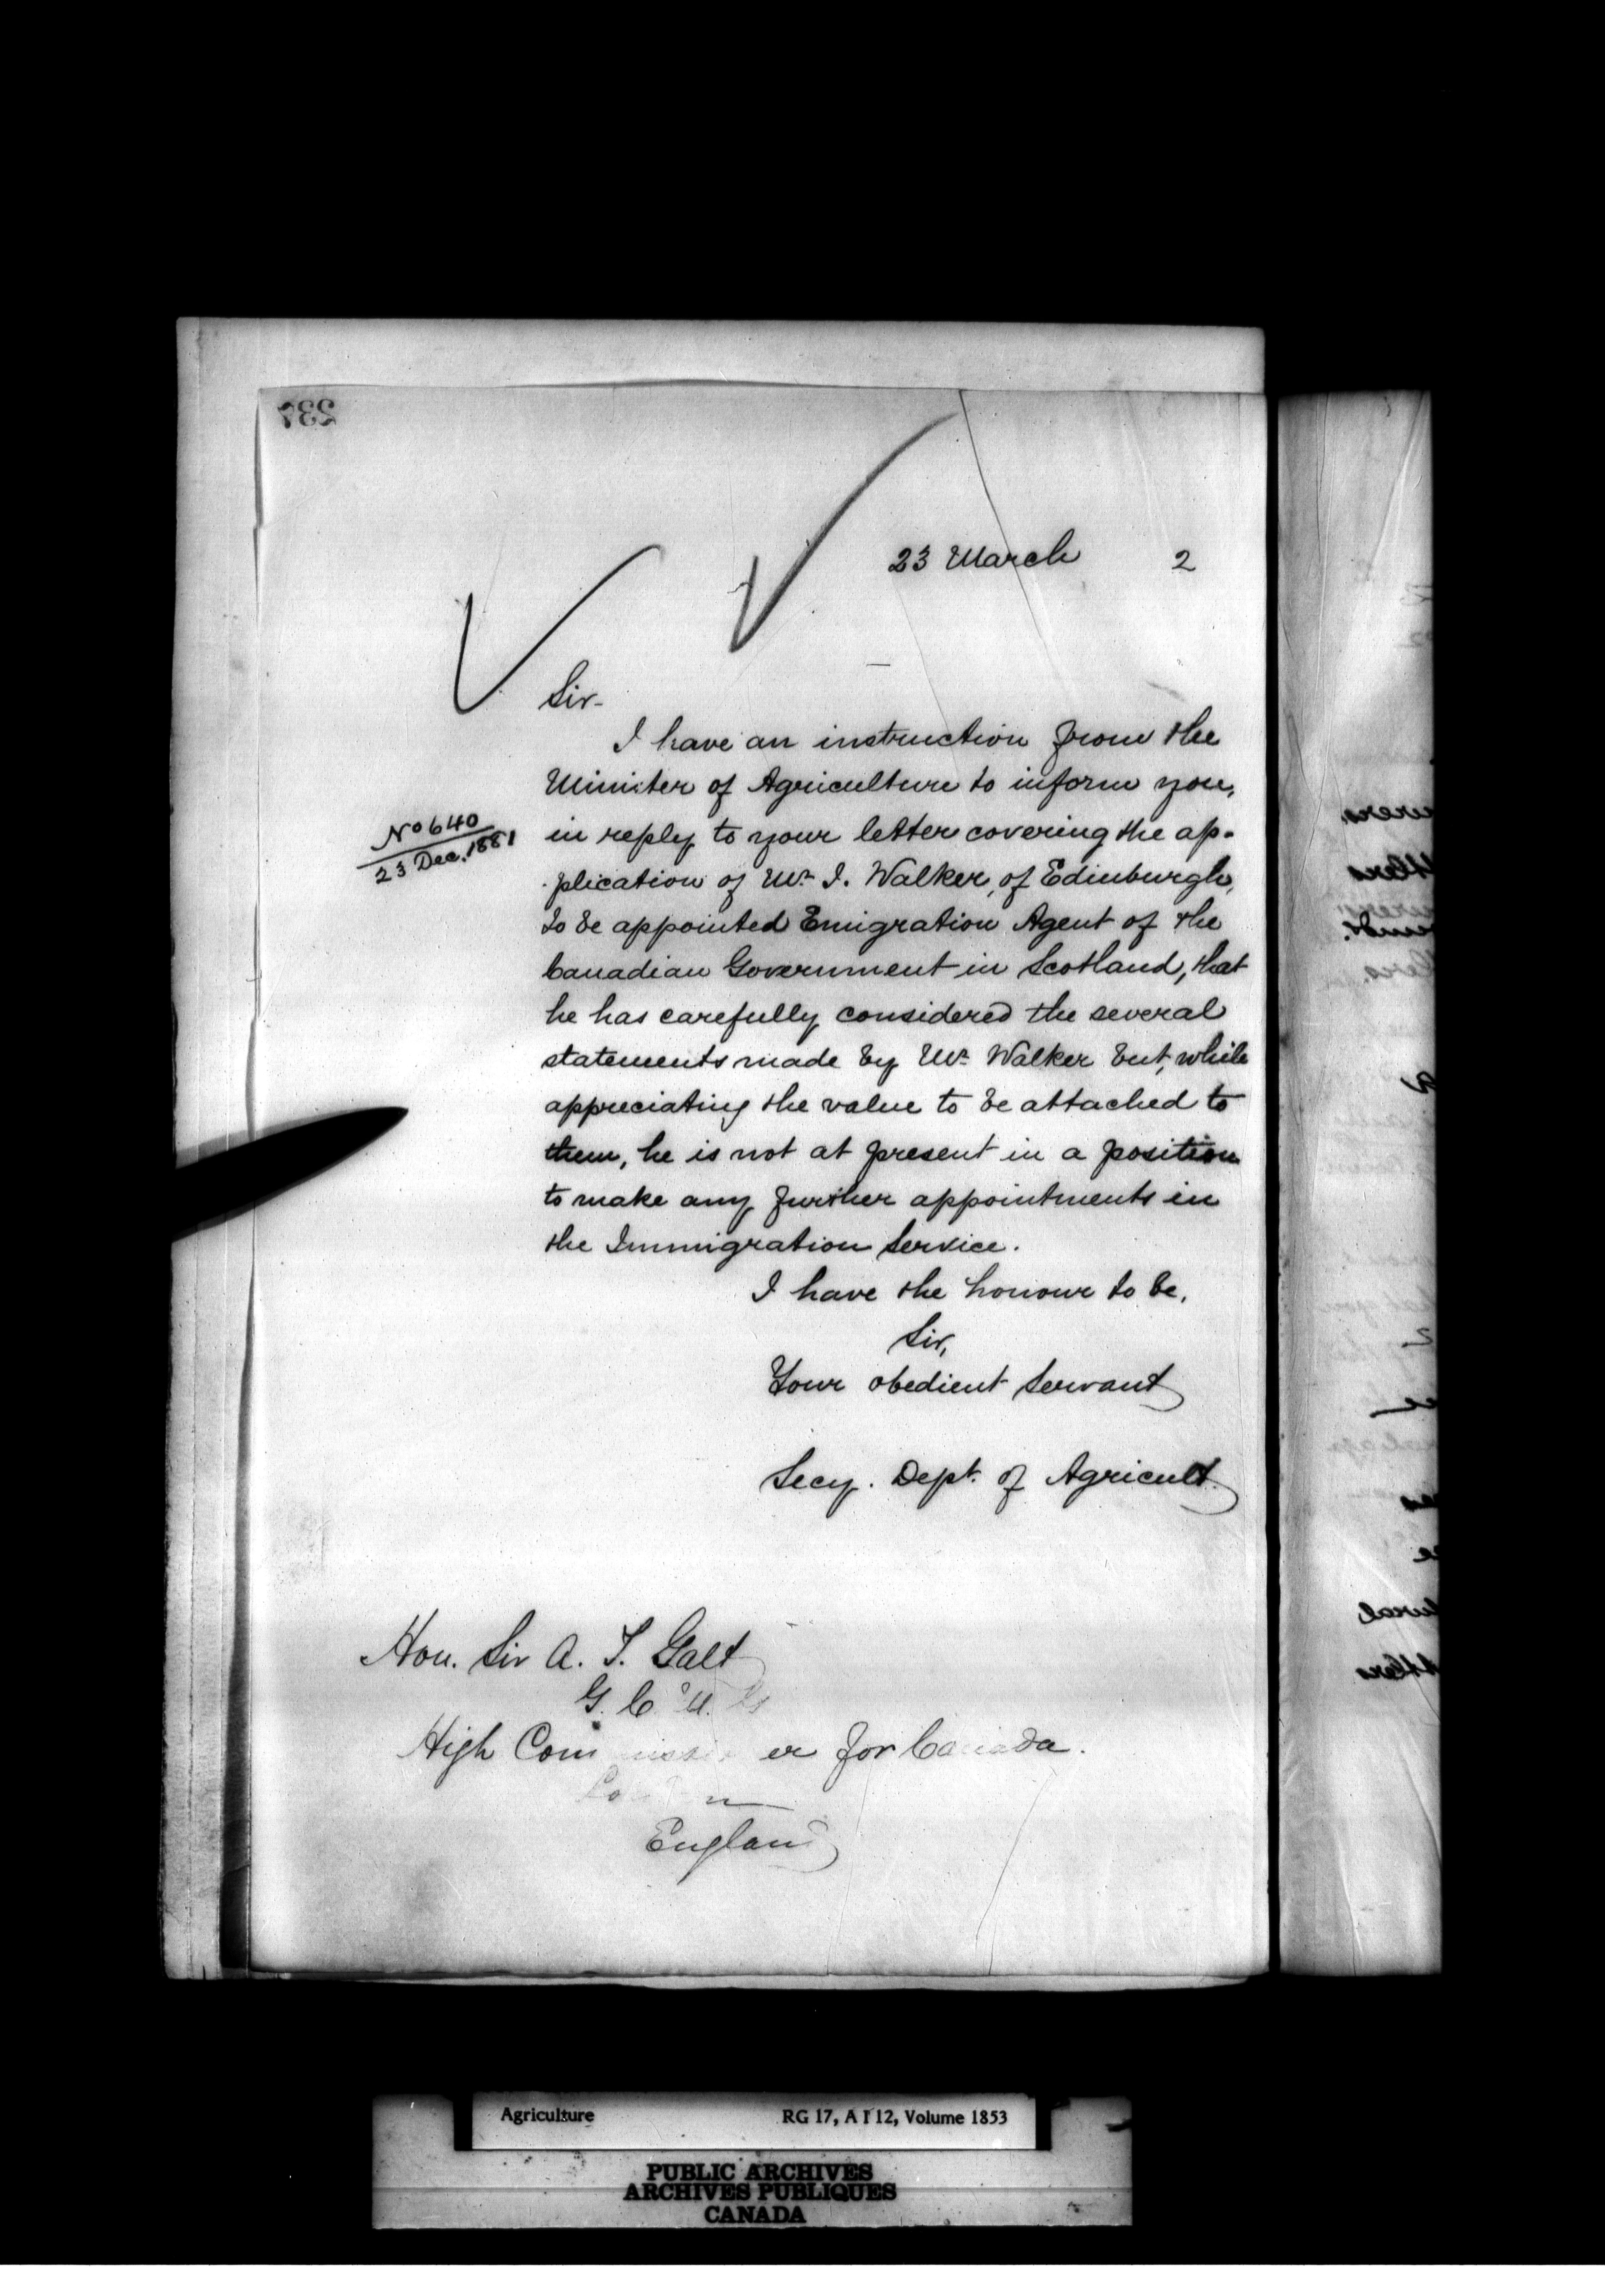 237
23 March 2
Sir-
I have an instruction from the
Minister of Agriculture to inform you,
No 640
23 Dec. 1881
in reply to your letter covering the ap-
plication of Mr. I. Walker, of Edinburgh,
to be appointed Emigration Agent of the
Canadian Government in Scotland, that
he has carefully considered the several
statements made by Mr. Walker but, while
appreciating the value to be attached to
them, he is not at present in a position
to make any further appointments in
the Immigration Service.
I have the honour to be,
Sir,
Your obedient Servant
Secy. Dept. of Agricult.
Hon. Sir A. T. Galt
G. C. M. G.
High Commissioner for Canada.
London
England
Agriculture RG 17, A I 12, Volume 1853
PUBLIC ARCHIVES
ARCHIVES PUBLIQUES
CANADA